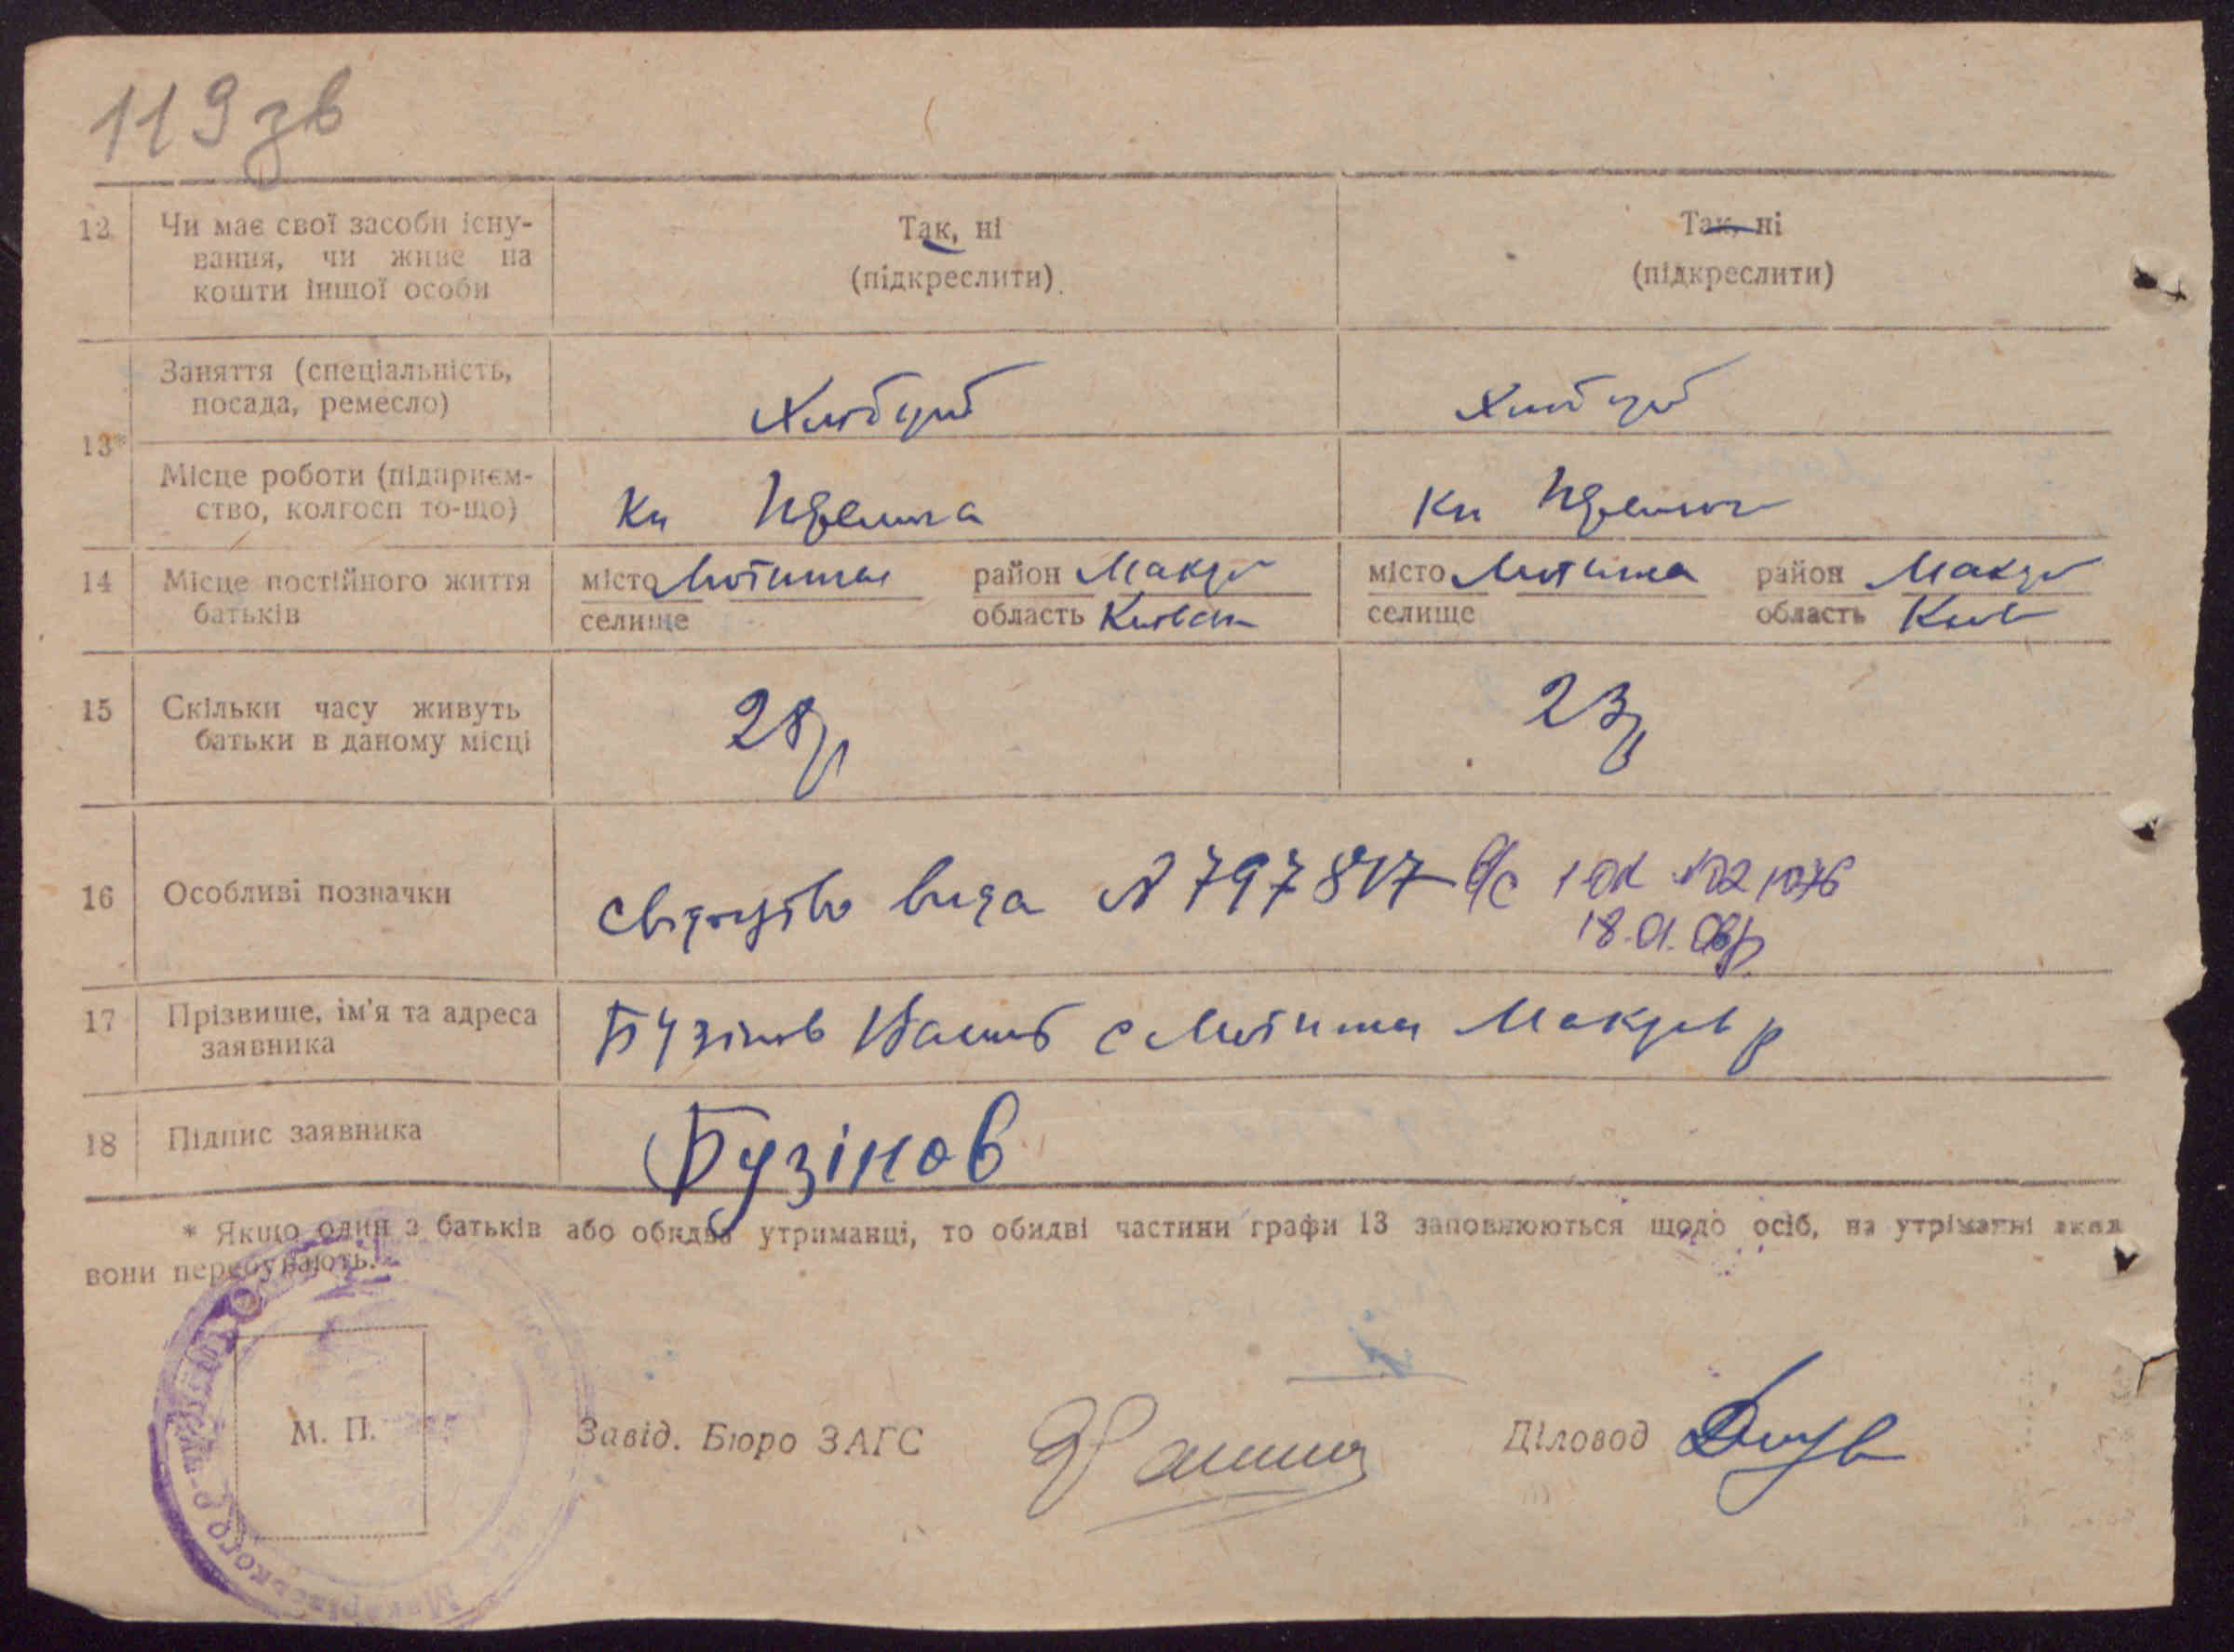 119 зв
12 Чи має свої засоби існу-
вання, чи живе на
кошти іншої особи
Так, ні
(підкреслити)
Так, ні
(підкреслити)
13*
Заняття (спеціальність,
посада, ремесло)
Хлібороб
Хлібороб
Місце роботи (підприєм-
ство, колгосп то-що)
14 Місце постійного життя
батьків
місто Мотижин район Макар
селище область Київськ
місто Мотижин район Макар
селище область Київ
15 Скільки часу живуть
батьки в даному місці
28 р
23 р
16 Особливі позначки
Свідоцтво видан № 797817
18.01.
17 Прізвище, ім'я та адреса
заявника
Бузінов с Мотижин Макарів р
18 Підпис заявника
Бузінов
* Якщо один з батьків або обидва утриманці, то обидві частини графи 13 заповнюються щодо осіб, на утріманні яких
вони перебувають.
М. П.
Завід. Бюро ЗАГС
Діловод
Макарівського